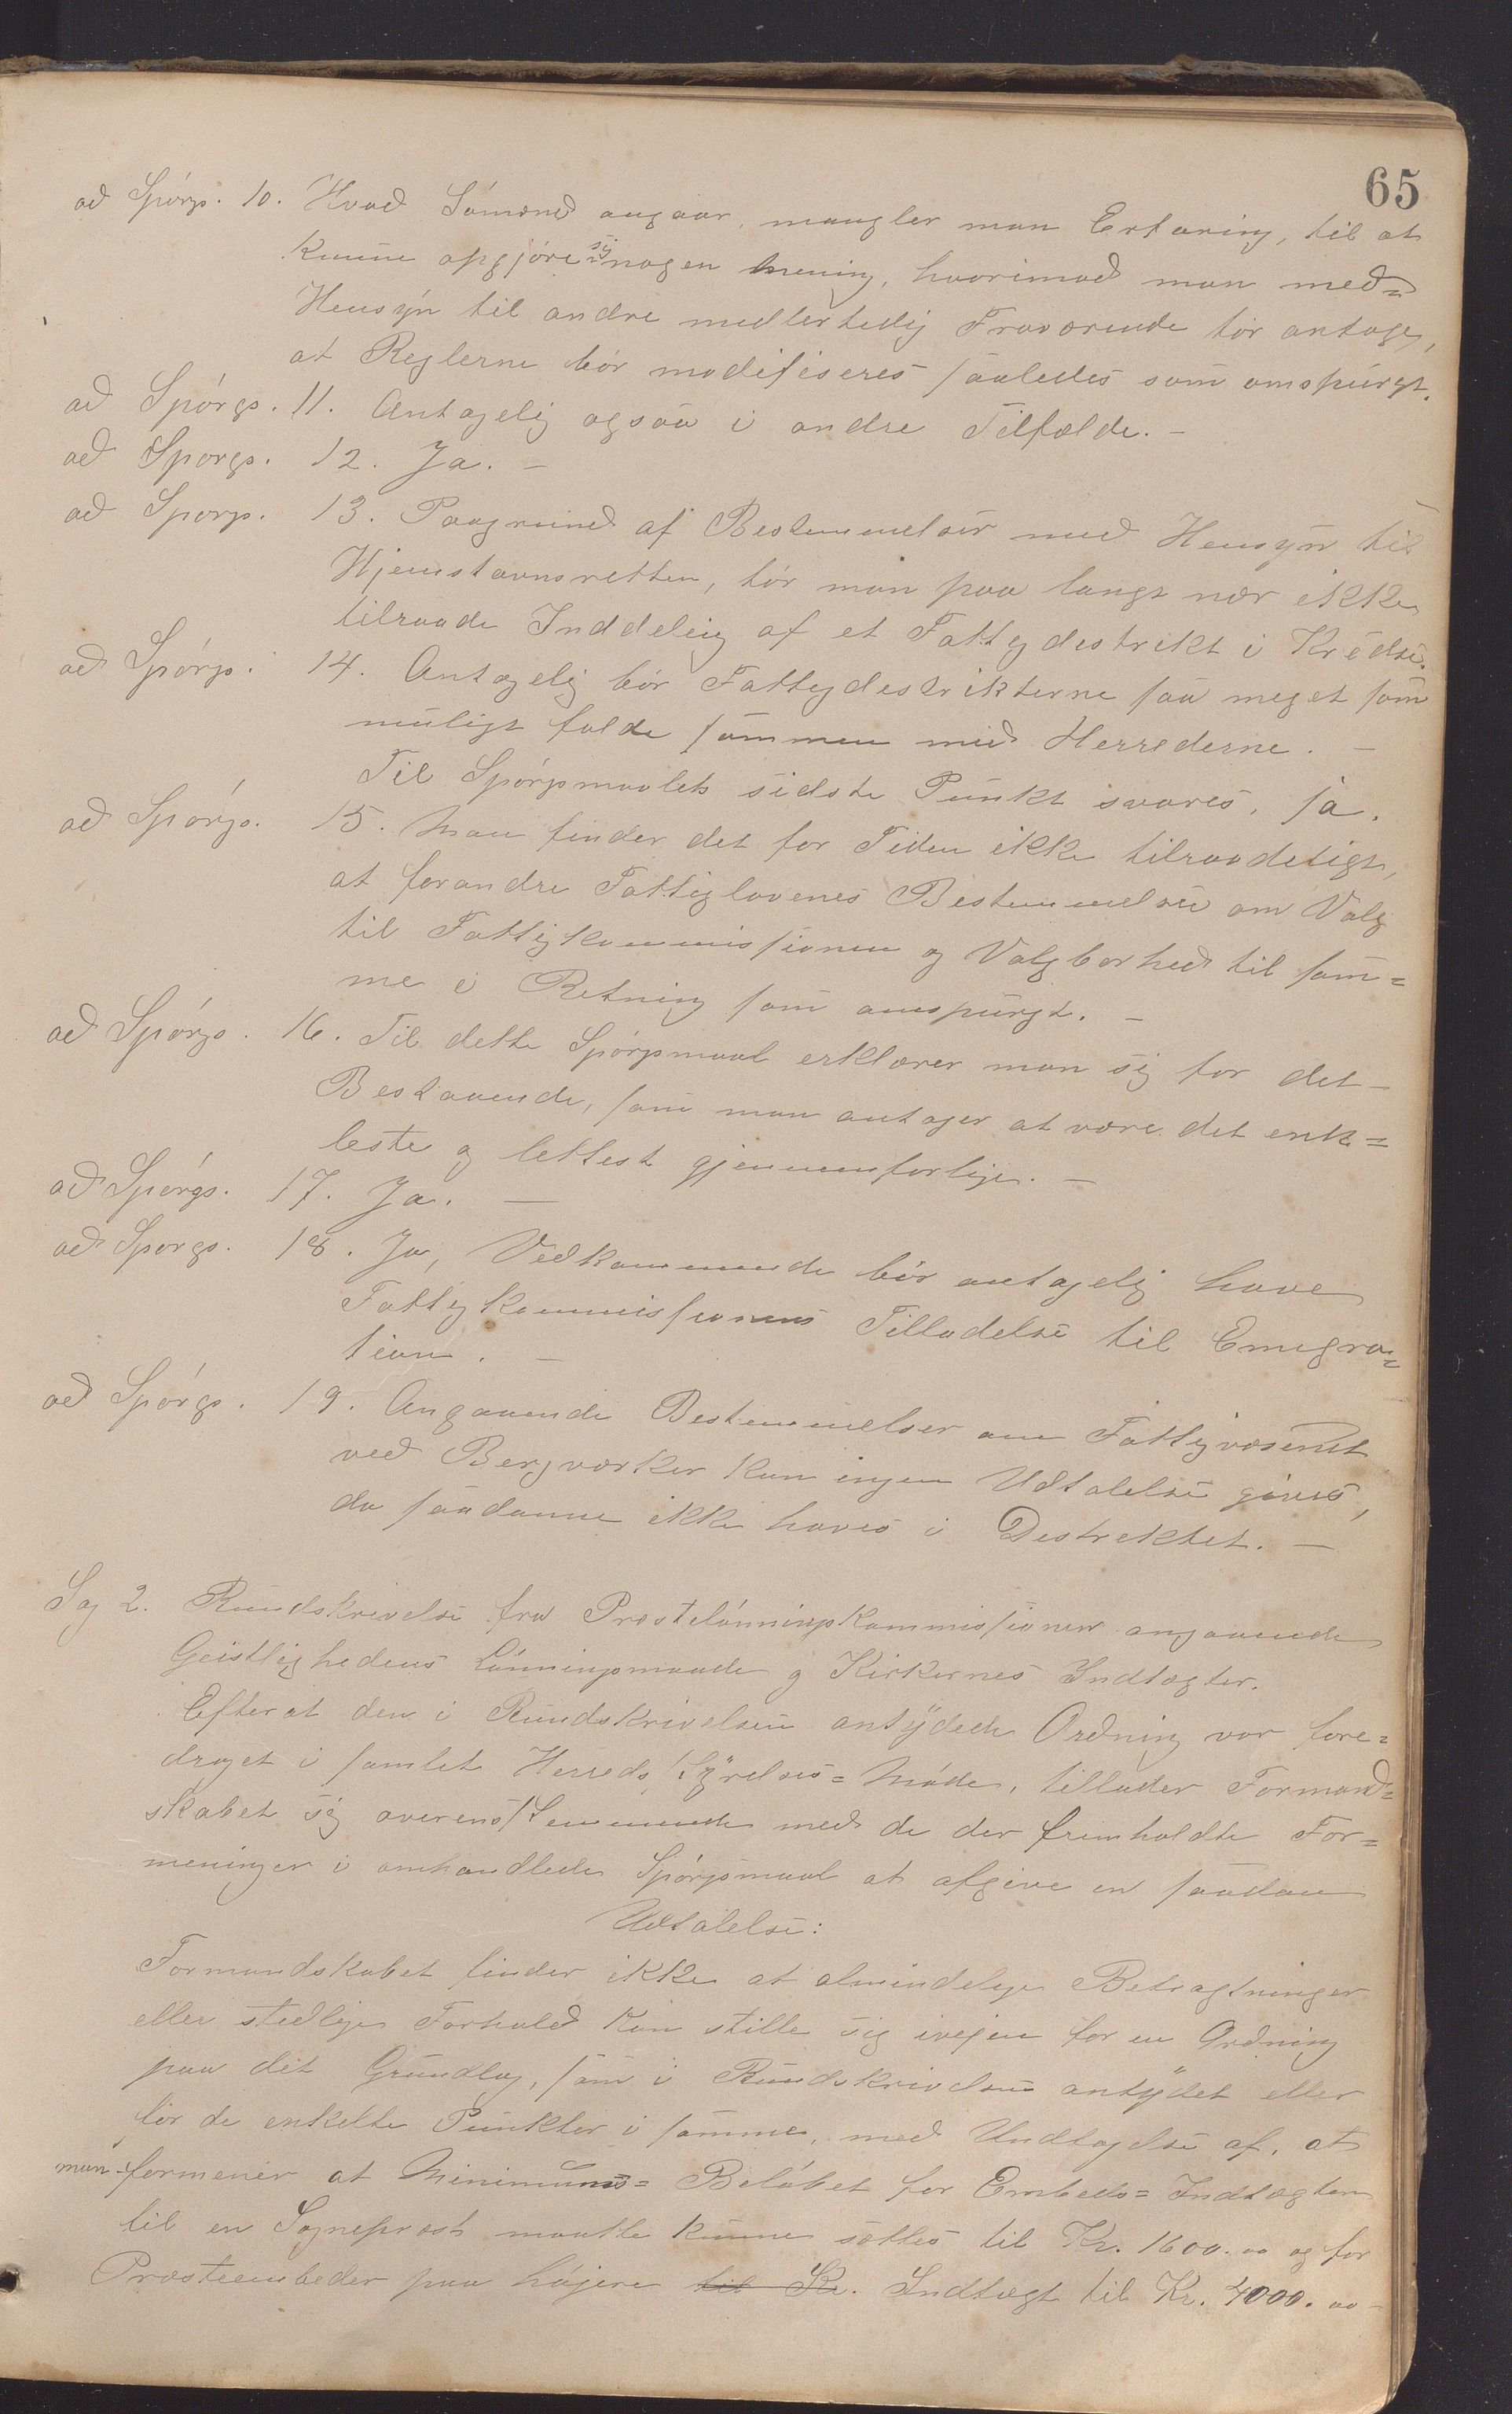 65
ad Spörgs. 10. Hvad Sömænd angaar, mangler man Erfaring, til at
kunne opgjöre sig nogen Mening, hvorimod man med=
Hensyn til andre midlertidig Fraværende tör antage,
at Reglerne bör modifiseres saaledes som omspurgt.
ad Spörgs. 11. Antagelig ogsaa i andre Tilfælde. -
ad Spörgs. 12. Ja. -
ad Spörgs. 13. Paagrund af Bestemmelser med Hensyn til
Hjemstavnsretten, tör man paa langt nær ikke
tilraade Inddeling af et Fattigdestrikt i Kredse.
ad Spörgs. 14. Antagelig bör Fattigdestrikterne saa meget som
muligt falde sammen med Herrederne. -
Til Spörgsmaalets sidste Punkt svares, ja.
ad Spörgs. 15. Man finder det for Tiden ikke tilraadeligt,
at forandre Fattiglovenes Bestemmelser om Valg
til Fattigkommissionen og Valgbarhed til sam=
me i Retning som omspurgt. -
ad Spörgs. 16. Til dette Spörgsmaal erklærer man sig for det -
Bestaaende, som man antager at være det enk=
leste og lettest gjennemförlige. -
ad Spörgs. 17. Ja. -
ad Spörgs. 18. Ja, Vedkommende bör antagelig have
Fattigkommissionens Tilladelse til Emigra=
tion. -
ad Spörgs. 19. Angaaende Bestemmelser om Fattigvæsenet
ved Bergværker kan ingen Udtalelse gives,
da saadanne ikke haves i Destrektet. -
Sag 2. Rundskrivelse fra Præstelönningskommissionen angaaende
Geistlighedens Lönningsmaade og Kirkernes Indtægter.
Efterat den i Rundskrivelsen antydede Ordning var fore=
draget i samlet Herreds Styrelses=Möde, tillader Formand=
skabet sig overensstemmende med de der fremholdte For=
meninger i omhandlede Spörgsmaal at afgive en saadan
Udtalelse:
Formandskabet finder ikke at almindelige Betragtninger
eller stedlige Forhold kan stille sig iveien for en Ordning
paa det Grundlag, som i Rundskrivelsen antydet eller
for de enkelte Punkter i samme, med Undtagelse af, at
man formener at Minimums=Belöbet for Embeds=Indtægten
til en Sognepræst maatte kunne sættes til Kr. 1600.00 og for
Præsteembeder paa höjere til Kr. Indtægt til Kr. 4000.00 -